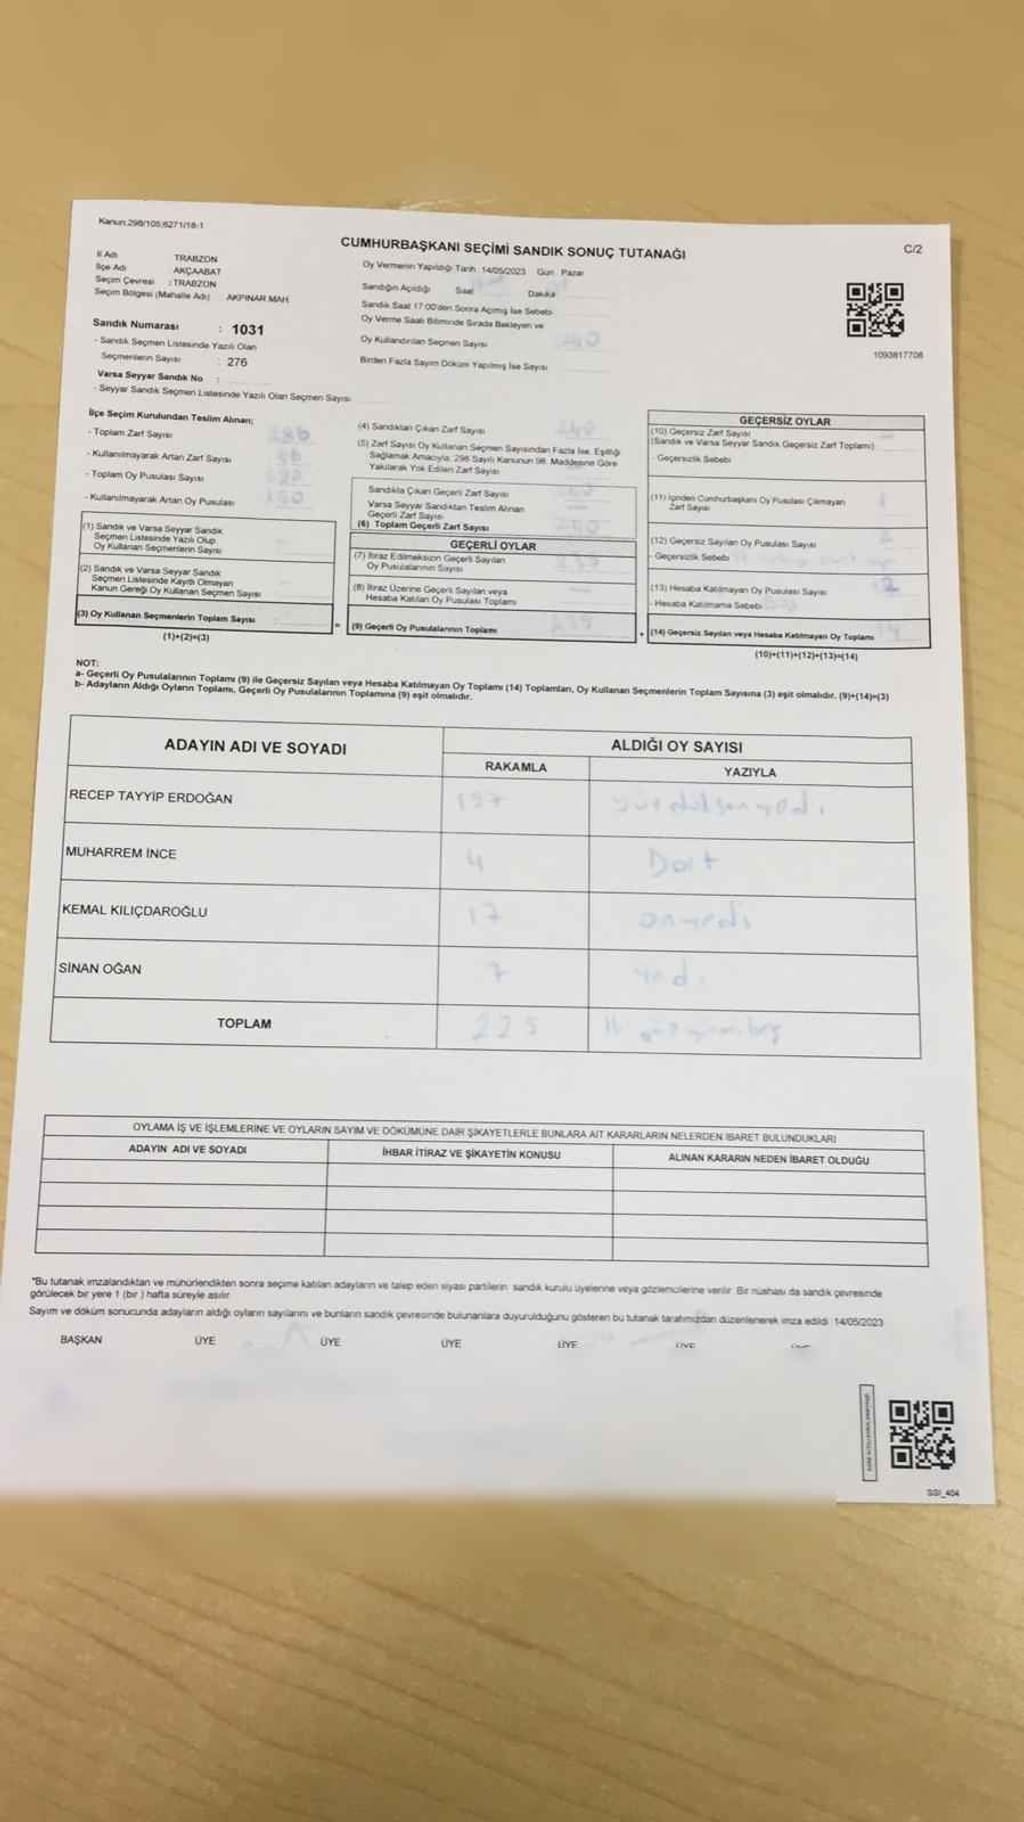 Kanun:298/105;6271/18-1
C/2
CUMHURBAŞKANI SEÇİMİ SANDIK SONUÇ TUTANAĞI
İl Adı TRABZON
İlçe Adı AKÇAABAT
Seçim Çevresi : TRABZON
Seçim Bölgesi (Mahalle Adı) AKPINAR MAH.
Sandık Numarası : 1031
- Sandık Seçmen Listesinde Yazılı Olan
Seçmenlerin Sayısı : 276
Varsa Seyyar Sandık No :
- Seyyar Sandık Seçmen Listesinde Yazılı Olan Seçmen Sayısı
Oy Vermenin Yapıldığı Tarih :14/05/2023 Gün : Pazar
Sandığın Açıldığı Saat Dakika
Sandık Saat 17:00'den Sonra Açılmış İse Sebebi
Oy Verme Saati Bitiminde Sırada Bekleyen ve
Oy Kullandırılan Seçmen Sayısı
Birden Fazla Sayım Döküm Yapılmış İse Sayısı
1093817708
İlçe Seçim Kurulundan Teslim Alınan;
- Toplam Zarf Sayısı
- Kullanılmayarak Artan Zarf Sayısı
- Toplam Oy Pusulası Sayısı
- Kullanılmayarak Artan Oy Pusulası
(1) Sandık ve Varsa Seyyar Sandık
Seçmen Listesinde Yazılı Olup
Oy Kullanan Seçmenlerin Sayısı
(2) Sandık ve Varsa Seyyar Sandık
Seçmen Listesinde Kayıtlı Olmayan
Kanun Gereği Oy Kullanan Seçmen Sayısı
(3) Oy Kullanan Seçmenlerin Toplam Sayısı
(1)+(2)=(3)
(4) Sandıktan Çıkan Zarf Sayısı
(5) Zarf Sayısı Oy Kullanan Seçmen Sayısından Fazla İse, Eşitliği
Sağlamak Amacıyla, 298 Sayılı Kanunun 98. Maddesine Göre
Yakılarak Yok Edilen Zarf Sayısı
Sandıkta Çıkan Geçerli Zarf Sayısı
Varsa Seyyar Sandıktan Teslim Alınan
Geçerli Zarf Sayısı
(6) Toplam Geçerli Zarf Sayısı
GEÇERLİ OYLAR
(7) İtiraz Edilmeksizin Geçerli Sayılan
Oy Pusulalarının Sayısı
(8) İtiraz Üzerine Geçerli Sayılan veya
Hesaba Katılan Oy Pusulası Toplamı
= (9) Geçerli Oy Pusulalarının Toplamı
GEÇERSİZ OYLAR
(10) Geçersiz Zarf Sayısı
(Sandık ve Varsa Seyyar Sandık Geçersiz Zarf Toplamı)
- Geçersizlik Sebebi
(11) İçinden Cumhurbaşkanı Oy Pusulası Çıkmayan
Zarf Sayısı
(12) Geçersiz Sayılan Oy Pusulası Sayısı
- Geçersizlik Sebebi
(13) Hesaba Katılmayan Oy Pusulası Sayısı
- Hesaba Katılmama Sebebi
+ (14) Geçersiz Sayılan veya Hesaba Katılmayan Oy Toplamı
(10)+(11)+(12)+(13)=(14)
NOT:
a- Geçerli Oy Pusulalarının Toplamı (9) ile Geçersiz Sayılan veya Hesaba Katılmayan Oy Toplamı (14) Toplamları, Oy Kullanan Seçmenlerin Toplam Sayısına (3) eşit olmalıdır. (9)+(14)=(3)
b- Adayların Aldığı Oyların Toplamı, Geçerli Oy Pusulalarının Toplamına (9) eşit olmalıdır.
ADAYIN ADI VE SOYADI ALDIĞI OY SAYISI
RAKAMLA YAZIYLA
RECEP TAYYİP ERDOĞAN 197
MUHARREM İNCE 4 Dört
KEMAL KILIÇDAROĞLU 17 onyedi
SİNAN OĞAN 7 yedi
TOPLAM 225
OYLAMA İŞ VE İŞLEMLERİNE VE OYLARIN SAYIM VE DÖKÜMÜNE DAİR ŞİKAYETLERLE BUNLARA AİT KARARLARIN NELERDEN İBARET BULUNDUKLARI
ADAYIN ADI VE SOYADI İHBAR İTİRAZ VE ŞİKAYETİN KONUSU ALINAN KARARIN NEDEN İBARET OLDUĞU
*Bu tutanak imzalandıktan ve mühürlendikten sonra seçime katılan adayların ve talep eden siyasi partilerin sandık kurulu üyelerine veya gözlemcilerine verilir. Bir nüshası da sandık çevresinde
görülecek bir yere 1 (bir) hafta süreyle asılır.
Sayım ve döküm sonucunda adayların aldığı oyların sayılarını ve bunların sandık çevresinde bulunanlara duyurulduğunu gösteren bu tutanak tarafımızdan düzenlenerek imza edildi. 14/05/2023
BAŞKAN ÜYE ÜYE ÜYE ÜYE ÜYE
SSI_404